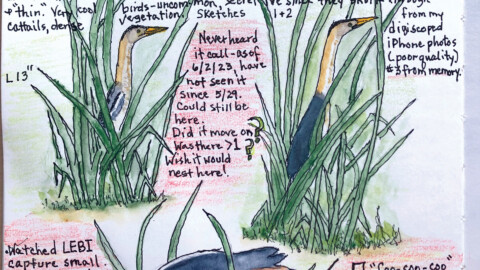 "thin." Very cool
birds-uncommon, secre
Cattails, dense
vegetation.
Sketches
1+2
from my
digiscoped
iPhone photos
(poor quality)
#3 from memory.
L 13"
Never heard
it call-as of
6/2/23, have
not seen it
since 5/29.
Could still be
here.
Did it move on?
Was there >1?
Wish it would
nest here!
•Watched LEBI
capture small
"Coo-coo-coo"